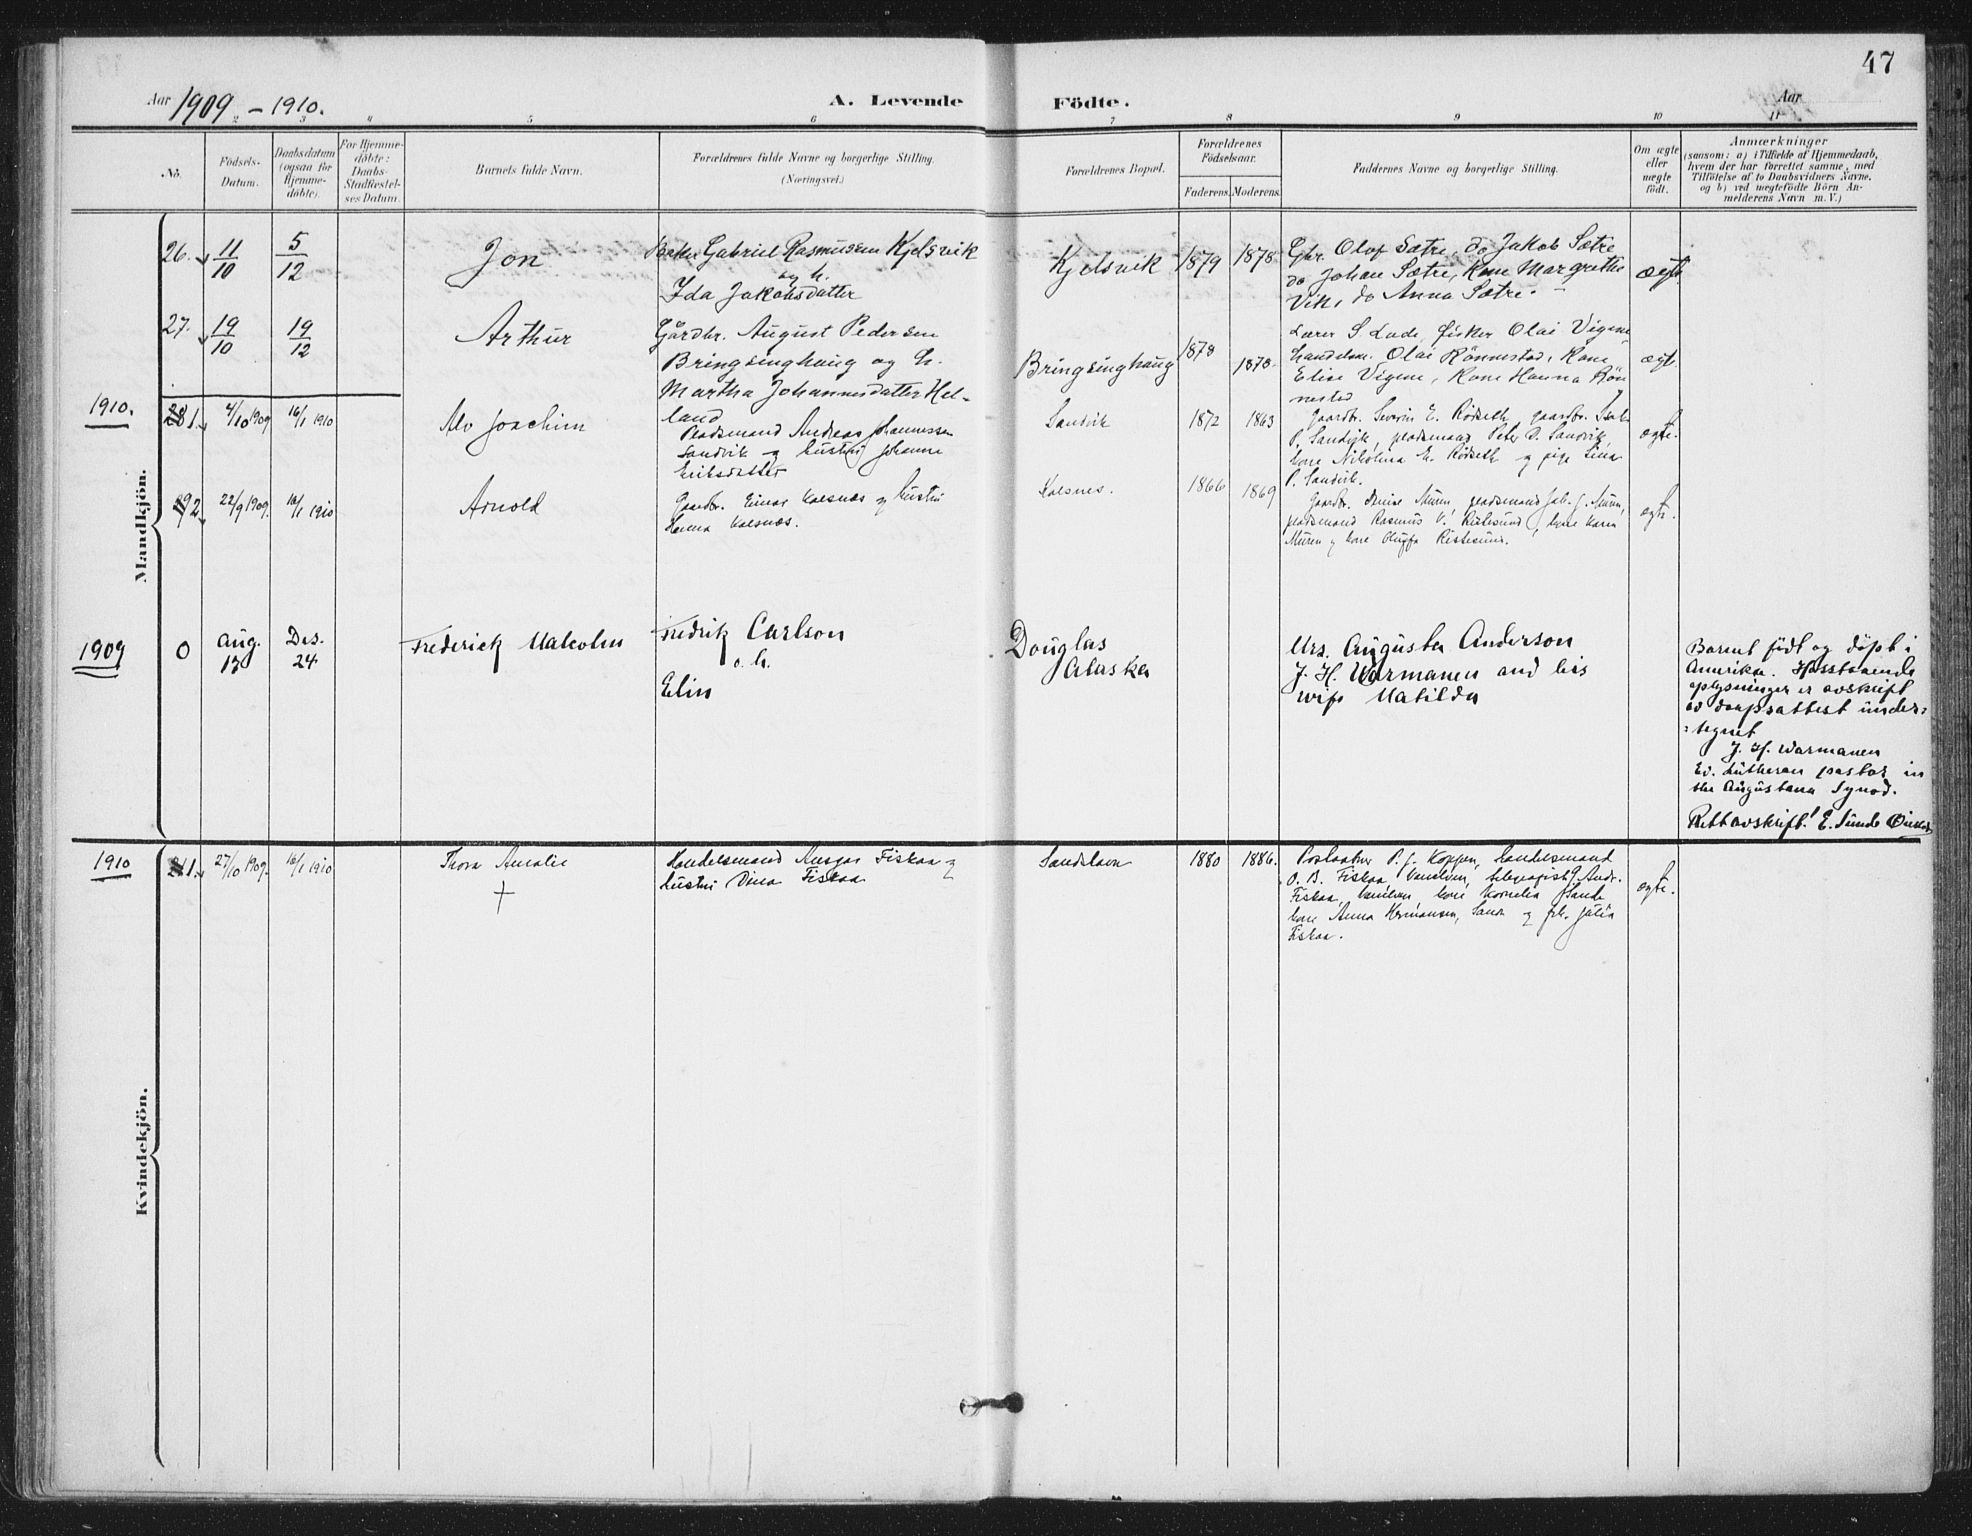 47
Aar 1909 – 1910.
A. Levende Födte.
Aar
2 3 4 5 6 7 8 9 10 11
No.
Födsels-
Datum.
Daabsdatum
(ogsaa for
Hjemme-
döbte).
For Hjemme-
döbte:
Daabs-
Stadfæstel-
ses Datum.
Barnets fulde Navn.
Forældrenes fulde Navne og borgerlige Stilling.
(Næringsvei.)
Forældrenes Bopæl.
Forældrenes
Födselsaar.
Faderens. Moderens.
Faddernes Navne og borgerlige Stilling.
Om ægte
eller
uægte
födt.
Anmærkninger
(saasom: a) i Tilfælde af Hjemmedaab,
hvem der har forrettet samme, med
Tilföielse af to Daabsvidners Navne,
og b) ved uegtefödte Börn An-
melderens Navn m. V.)
Mandkjön.
26. 11/10 5/12
Jon
Gabriel Rasmussen Kjelsvik
og h.
Ida Jakobsdatter
Kjelsvik
1879 1878
Gbr. Olof Sætre, do Jakob Sætre
do Johan Sætre, Kone Margrethe
Vik, do Anna Sætre.
ægte
27. 19/10 19/12
Arthur
Gårdbr. August Pedersen
Bringsinghaug og h.
Martha Johannesdatter Hel-
land
Bringsinghaug
1878 1878.
Lærer S. Lade, fisker Olai Vigene
handelsm. Olai Rönnestad, Kone
Elise Vigene, Kone Hanna Rön
nestad
ægte
1910.
1. 4/10 1909 16/1 1910
Alv Joachim
Pladsmand Andreas Johannessen
Sandvik og hustru Johanne
Eriksdatter
Sandvik
1872 1863
gaardbr. Severin E. Rödseth, gaardbr.
P. Sandvik, pladsmand Peter D. Sandvik,
kone Nikolina E. Rödseth og pige Lina
P. Sandvik.
ægte.
2. 22/9 1909. 16/1 1910
Arnold
Gaardbr. Einar Koesnæs og hustru
Hanna Koesnæs.
Koesnes.
1866 1869
Gaardbr. Muren, pladsmand Jak. J. Muren,
pladsmand Rasmus V. Ristesund, kone Karen
Muren og kone Oluffa Ristesund.
ægte.
1909
0 Aug. 13 Des. 24
Frederick Malcolm
Fredrik Carlson
o. h.
Elin
Douglas
Alaska
Mrs. Augusta Anderson
J. H. Warmanen and his
wife Matilda
Barnet födt og döpt i
Amerika. Hosstaaende
oplysninger er avskrift
av daapsattest under-
tegnet
J. H. Warmanen
Ev. Lutheran pastor in
the Augustana Synod.
Rett avskrift! E. Sunde
Kvindekjön.
1910
1. 27/10 1909. 16/1 1910
Thora Amalie
†
Handelsmand Ansgar Fiskaa og
hustru Dina Fiskaa
Sandshavn
1880 1886.
Postaabner P. J. Koppen, handelsmand
O. B. Fiskaa, telegrafist Andr.
Fiskaa, kone Kornelia Sande
kone Anna Hermansen, Sande og frk. Julia
Fiskaa.
ægte.